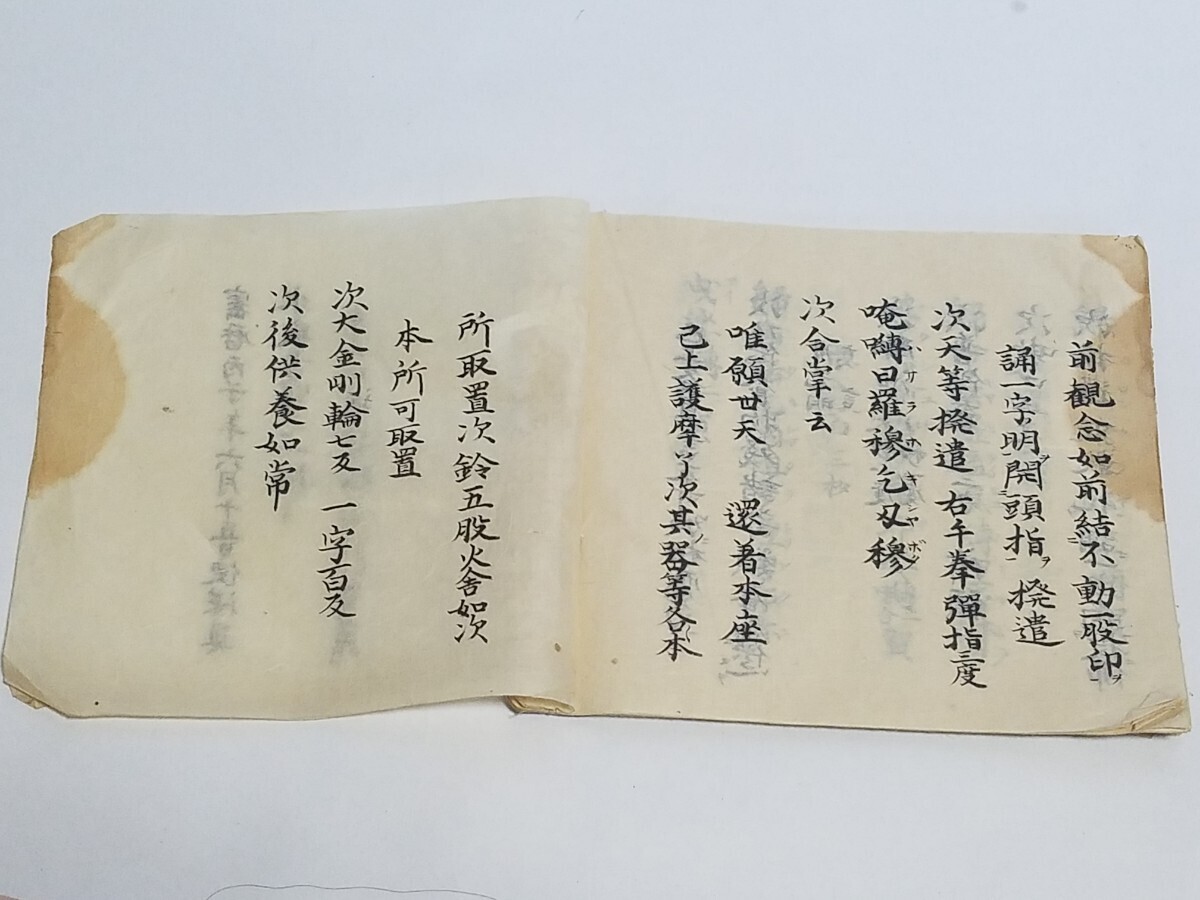 前観念如前結不動一股印ヲ
誦一字明ヲ開頭指ヲ 撥遣
次天等撥遣 右手拳彈指三度
唵嚩日羅穆乞叉穆
バサラボキシャボク
次合掌云
唯願世天 還着本座
已上護摩了次其器等各本
所取置次鈴五股火舎如次
本所可取置
次大金剛輪七反 一字百反
次後供養如常